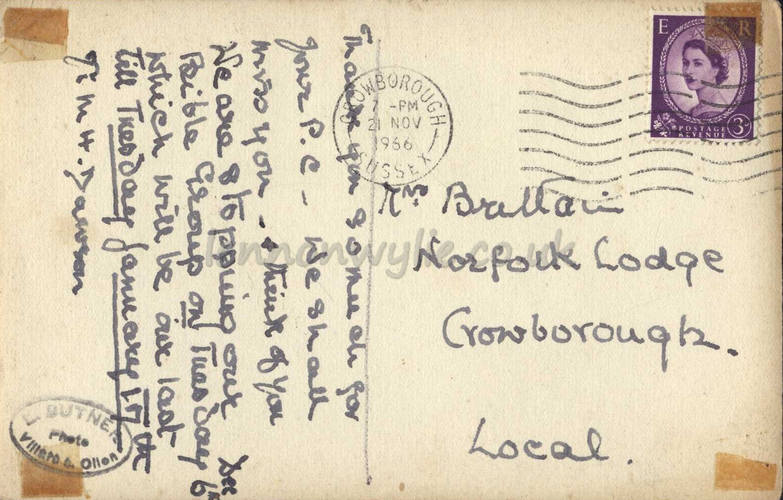 Thank you so much for
your P.C - We shall
miss you - & think of you
We are stopping our
Bible Group on Tuesday Dec 6th
which will be our last
till Tuesday January 17th
J. M. H. Dawson
CROWBOROUGH
7 - PM
21 NOV
1966
SUSSEX
E R
POSTAGE
REVENUE
3D
Mrs Brittain
Norfolk Lodge
Crowborough.
Local.
lennonwylie.co.uk
E. BUTNER
Photo
Villars s. Ollon